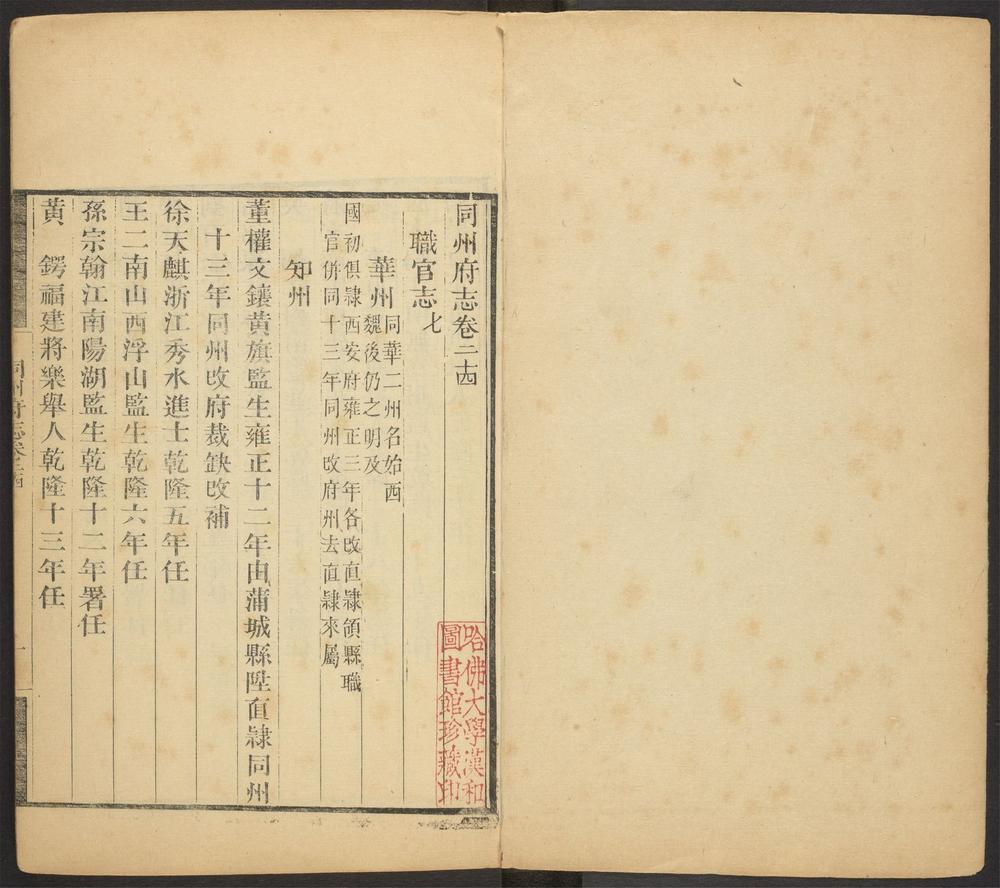 同州府志卷二十四
職官志七
華州同華二州名始西
魏後仍之明及
國初俱隸西安府雍正三年各改直隸領縣職
官併同十三年同州改府州去直隸來屬
知州
董權文鑲黃旗監生雍正十二年由蒲城縣陞直隸同州
十三年同州改府裁缺改補
徐天麒浙江秀水進士乾隆五年任
王二南山西浮山監生乾隆六年任
孫宗翰江南陽湖監生乾隆十二年署任
黃 鍔福建將樂舉人乾隆十三年任
同州府志卷二十四
一
哈佛大學漢和
圖書館珍藏印